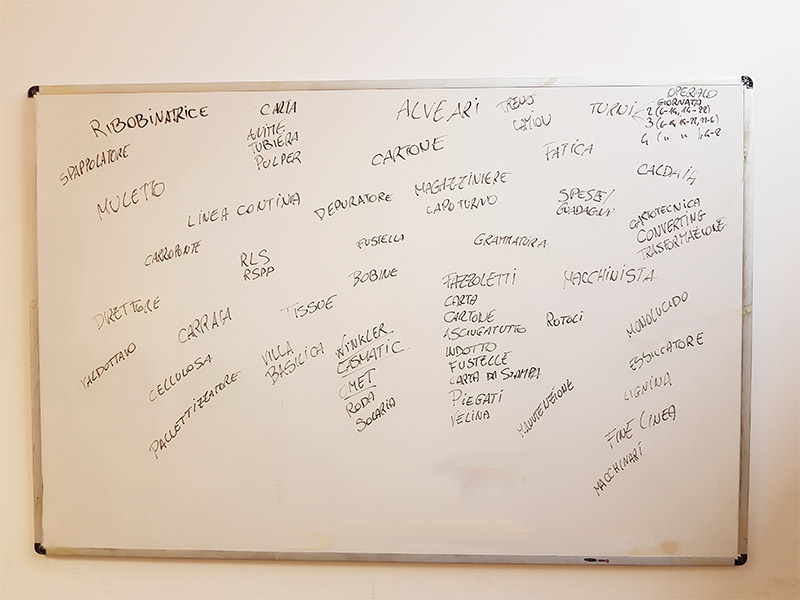 RIBOBINATRICE
CARTA
ANIME
TUBIERA
PULPER
ALVEARI
TRENO
CAMION
TURNI
OPERAIO
GIORNATA
2 (6-14, 14-22)
3 (6-14 14-22, 22-6)
4 (" " ), 6-2
SPAPPOLATORE
CARTONE
FATICA
CALDAIA
MULETTO
LINEA CONTINUA
DEPURATORE
MAGAZZINIERE
CAPOTURNO
SPESE/
GUADAGNI
CARTOTECNICA
CONVERTING
TRASFORMAZIONE
CARROPONTE
RLS
RSPP
FUSTELLA
GRAMMATURA
BOBINE
FAZZOLETTI
CARTA
CARTONE
ASCIUGATUTTO
INDOTTO
FUSTELLE
CARTA DA STAMPA
PIEGATI
VELINA
MACCHINISTA
DIRETTORE
CARRAIA
TISSUE
ROTOLI
MONOLUCIDO
VALDOTTAVO
CELLULOSA
VILLA
BASILICA
WINKLER
CASMATIC
OMET
RODA
SOLARIA
ESSICCATORE
PALLETTIZZATORE
MANUTENZIONE
LIGNINA
FINE LINEA
MACCHINARI